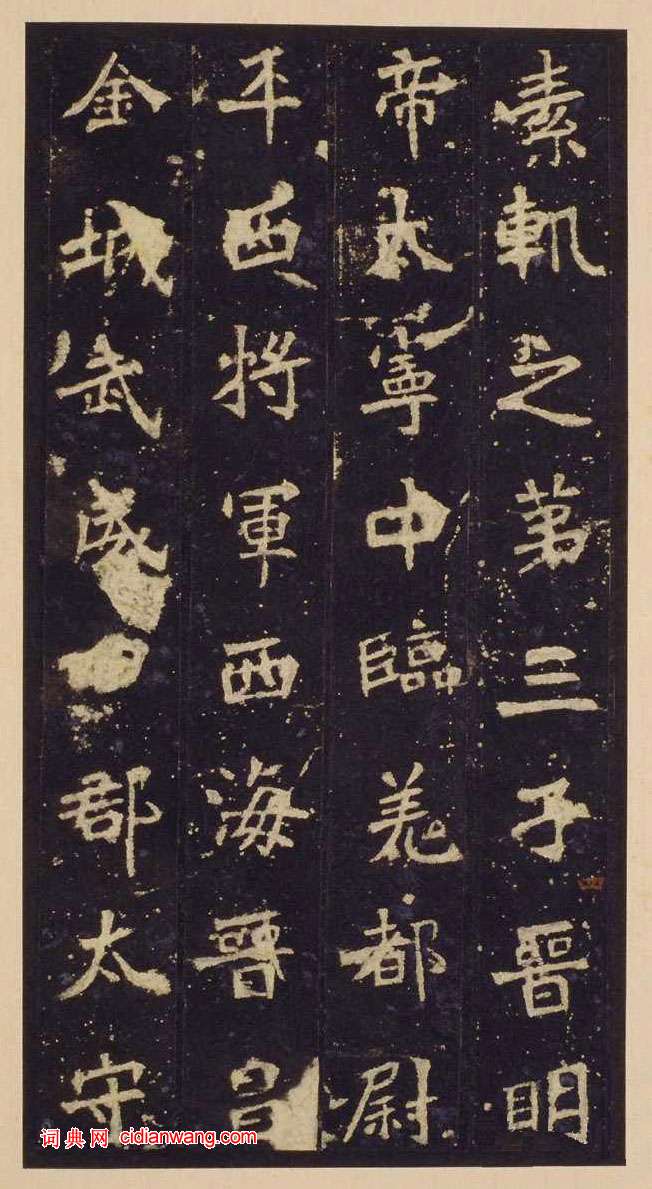 素軌之第三子晉明
帝太寧中臨羌都尉
平西將軍西海晉昌
金城武威四郡太守
词典网 cidianwang.com